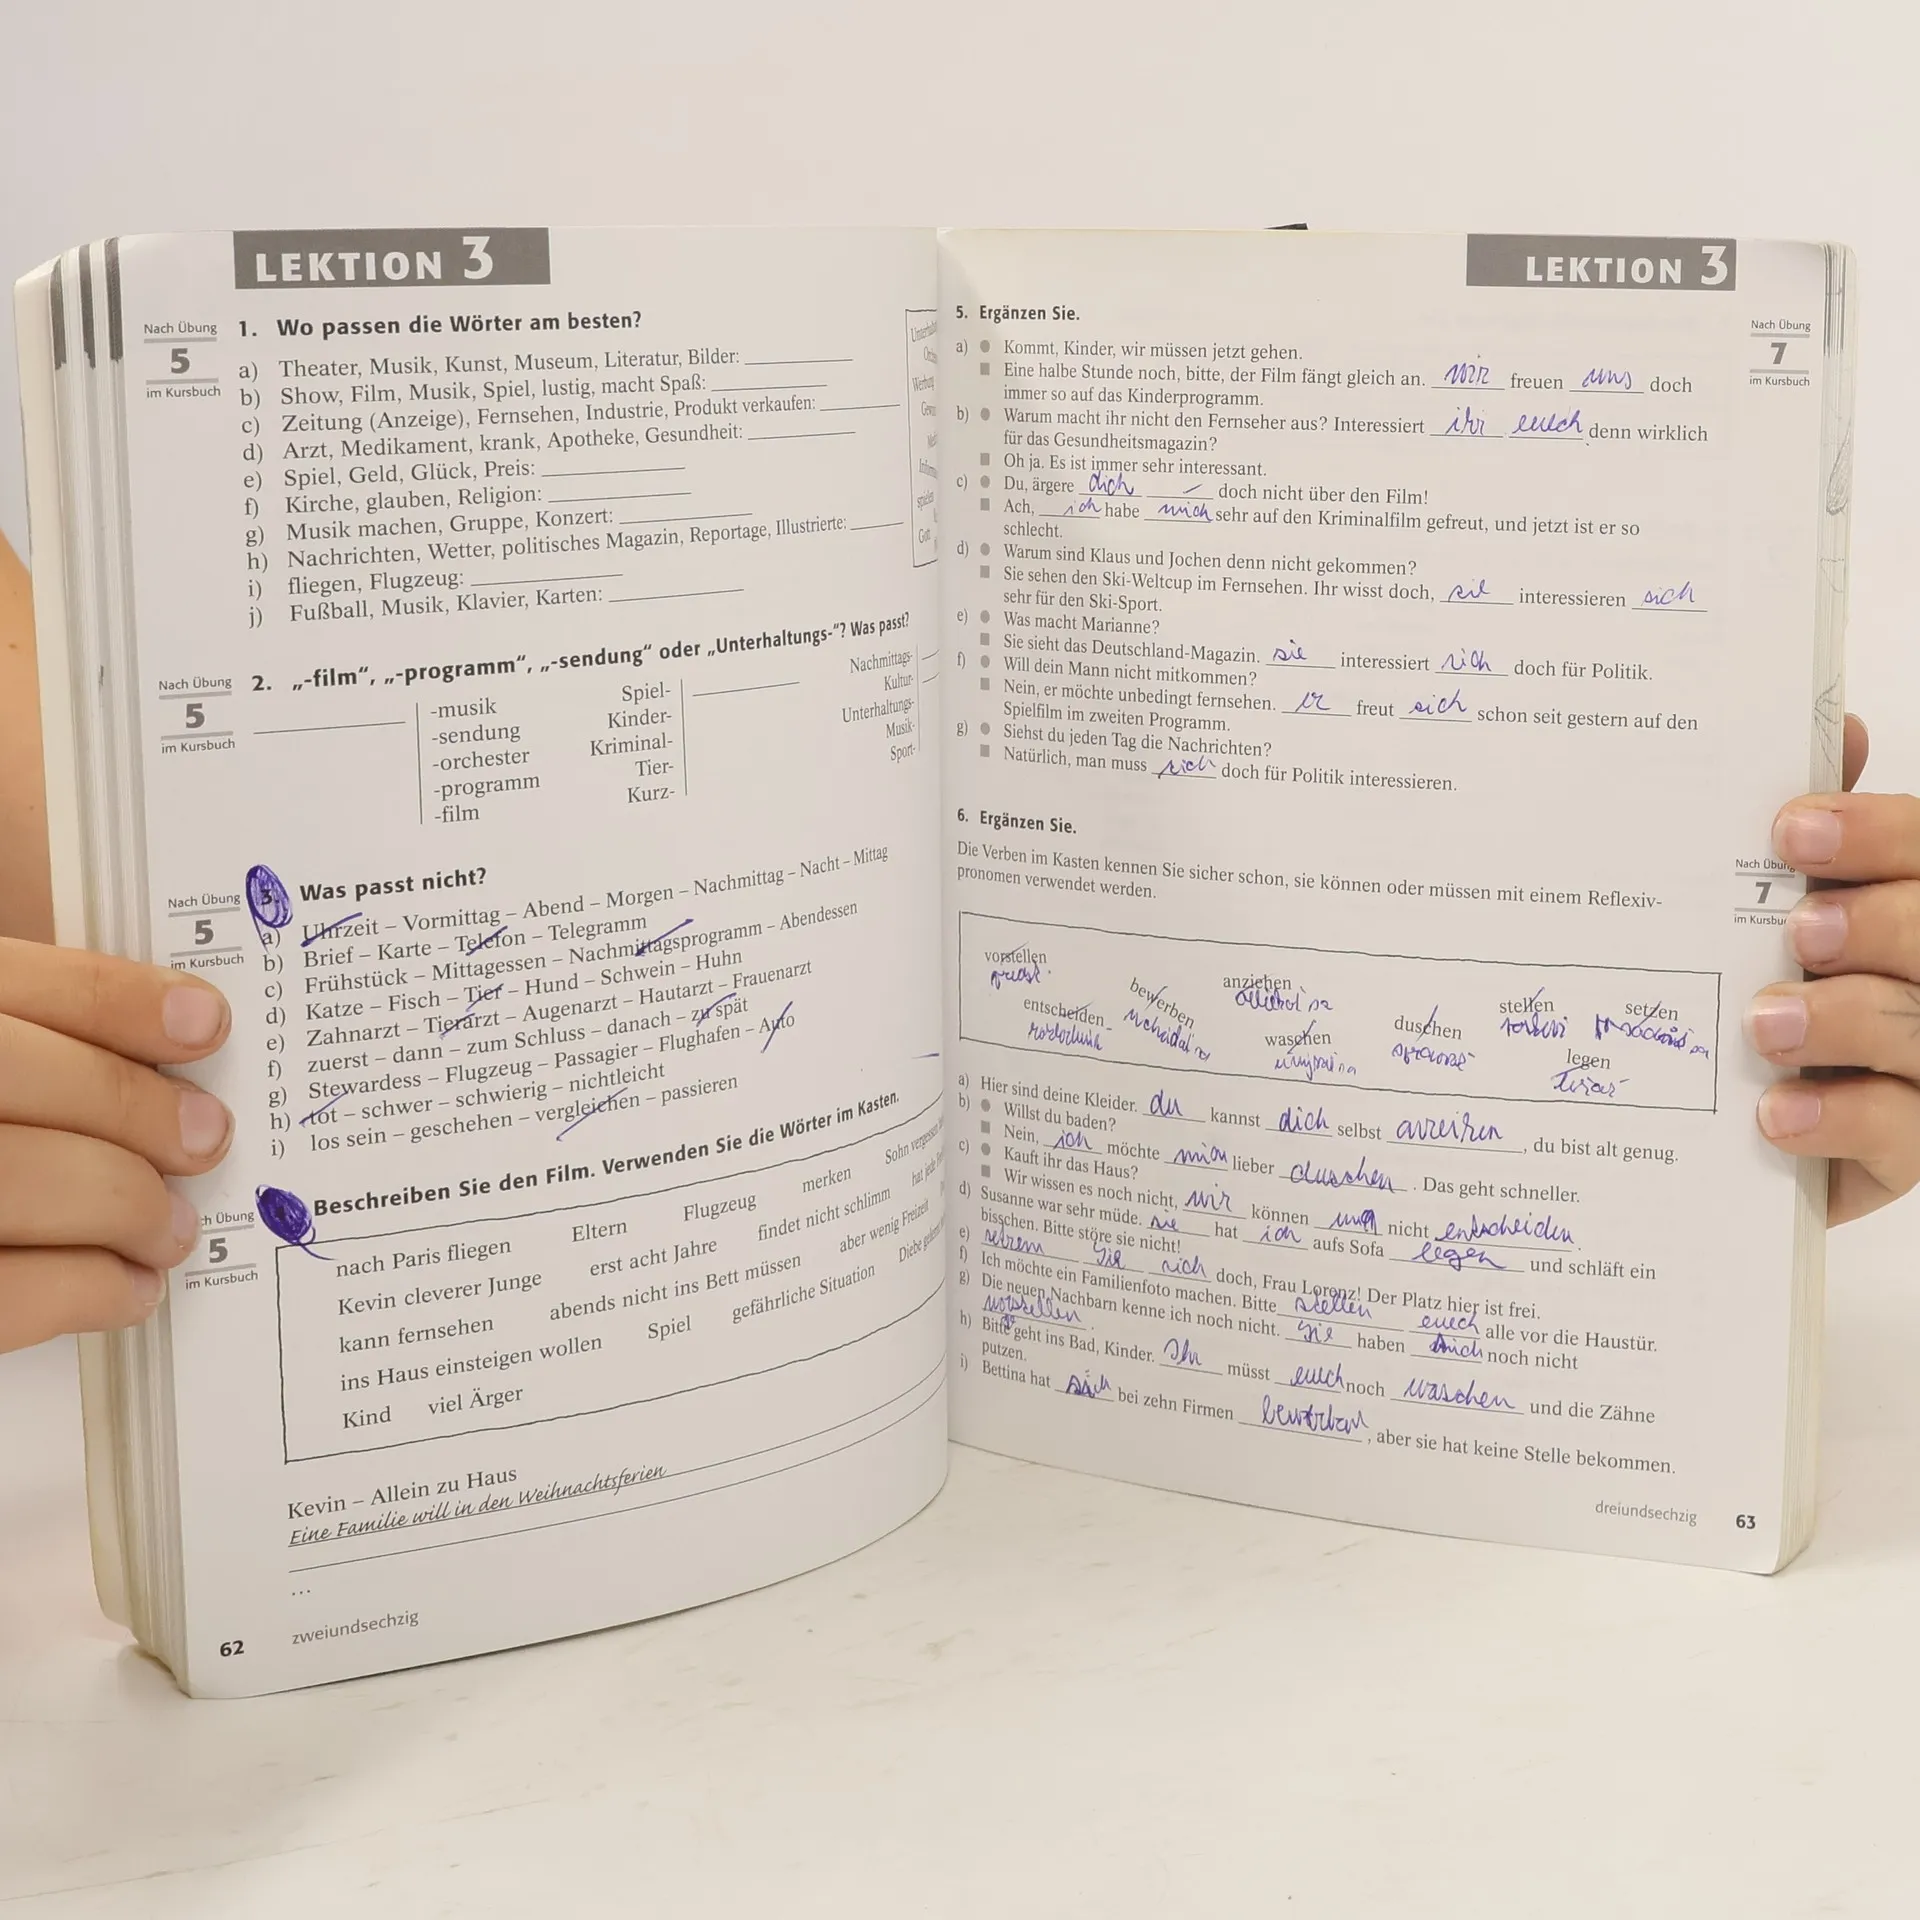 LEKTION 3
Nach Übung
5
im Kursbuch
1. Wo passen die Wörter am besten?
a) Theater, Musik, Kunst, Museum, Literatur, Bilder:
b) Show, Film, Musik, Spiel, lustig, macht Spaß:
c) Zeitung (Anzeige), Fernsehen, Industrie, Produkt verkaufen:
d) Arzt, Medikament, krank, Apotheke, Gesundheit:
e) Spiel, Geld, Glück, Preis:
f) Kirche, glauben, Religion:
g) Musik machen, Gruppe, Konzert:
h) Nachrichten, Wetter, politisches Magazin, Reportage, Illustrierte:
i) fliegen, Flugzeug:
j) Fußball, Musik, Klavier, Karten:
Nach Übung
5
im Kursbuch
2. „-film“, „-programm“, „-sendung“ oder „Unterhaltungs-“? Was passt?
-musik
-sendung
-orchester
-programm
-film
Spiel-
Kinder-
Kriminal-
Tier-
Kurz-
Nachmittags-
Kultur-
Unterhaltungs-
Musik-
Sport-
Nach Übung
5
im Kursbuch
3. Was passt nicht?
a) Uhrzeit – Vormittag – Abend – Morgen – Nachmittag – Nacht – Mittag
b) Brief – Karte – Telefon – Telegramm
c) Frühstück – Mittagessen – Nachmittagsprogramm – Abendessen
d) Katze – Fisch – Tier – Hund – Schwein – Huhn
e) Zahnarzt – Tierarzt – Augenarzt – Hautarzt – Frauenarzt
f) zuerst – dann – zum Schluss – danach – zu spät
g) Stewardess – Flugzeug – Passagier – Flughafen – Auto
h) tot – schwer – schwierig – nichtleicht
i) los sein – geschehen – vergleichen – passieren
Übung
5
im Kursbuch
Beschreiben Sie den Film. Verwenden Sie die Wörter im Kasten.
nach Paris fliegen Eltern Flugzeug merken Sohn
Kevin cleverer Junge erst acht Jahre findet nicht schlimm hat
kann fernsehen abends nicht ins Bett müssen aber wenig Freizeit
ins Haus einsteigen wollen Spiel gefährliche Situation Diebe
Kind viel Ärger
Kevin – Allein zu Haus
Eine Familie will in den Weihnachtsferien
...
62 zweiundsechzig
LEKTION 3
Nach Übung
7
im Kursbuch
5. Ergänzen Sie.
a) Kommt, Kinder, wir müssen jetzt gehen.
Eine halbe Stunde noch, bitte, der Film fängt gleich an. wir freuen uns doch
immer so auf das Kinderprogramm.
b) Warum macht ihr nicht den Fernseher aus? Interessiert ihr euch denn wirklich
für das Gesundheitsmagazin?
Oh ja. Es ist immer sehr interessant.
c) Du, ärgere dich – doch nicht über den Film!
Ach, ich habe mich sehr auf den Kriminalfilm gefreut, und jetzt ist er so
schlecht.
d) Warum sind Klaus und Jochen denn nicht gekommen?
Sie sehen den Ski-Weltcup im Fernsehen. Ihr wisst doch, sie interessieren sich
sehr für den Ski-Sport.
e) Was macht Marianne?
Sie sieht das Deutschland-Magazin. sie interessiert sich doch für Politik.
f) Will dein Mann nicht mitkommen?
Nein, er möchte unbedingt fernsehen. er freut sich schon seit gestern auf den
Spielfilm im zweiten Programm.
g) Siehst du jeden Tag die Nachrichten?
Natürlich, man muss sich doch für Politik interessieren.
Nach
7
im
6. Ergänzen Sie.
Die Verben im Kasten kennen Sie sicher schon, sie können oder müssen mit einem Reflexiv-
pronomen verwendet werden.
vorstellen bewerben anziehen stellen setzen
entscheiden waschen duschen legen
a) Hier sind deine Kleider. du kannst dich selbst , du bist alt genug.
b) Willst du baden?
Nein, ich möchte lieber duschen. Das geht schneller.
c) Kauft ihr das Haus?
Wir wissen es noch nicht, wir können nicht entscheiden.
d) Susanne war sehr müde. sie hat aufs Sofa legen und schläft ein
bisschen. Bitte störe sie nicht!
e) Sie sich doch, Frau Lorenz! Der Platz hier ist frei.
f) Ich möchte ein Familienfoto machen. Bitte stellen euch alle vor die Haustür.
g) Die neuen Nachbarn kenne ich noch nicht. Sie haben noch nicht
vorstellen.
h) Bitte geht ins Bad, Kinder. Ihr müsst euch noch waschen und die Zähne
putzen.
i) Bettina hat sich bei zehn Firmen , aber sie hat keine Stelle bekommen.
dreiundsechzig 63